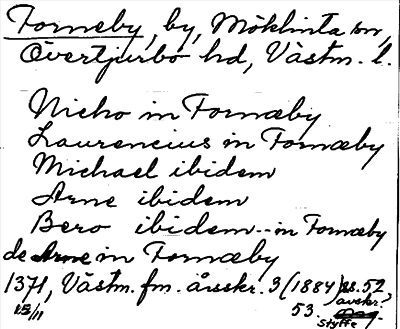 Forneby, by, Möklinta sn,
Övertjurbo hd, Västm. l.
Nicho in Fornæby
Laurencius in Fornæby
Michael ibidem
Arne ibidem
Bero ibidem -- in Fornæby
de Arne in Fornæby
1371, Västm. fm. årsskr. 3 (1884) ss. 52
15/11 53. avskr.?
Styffe